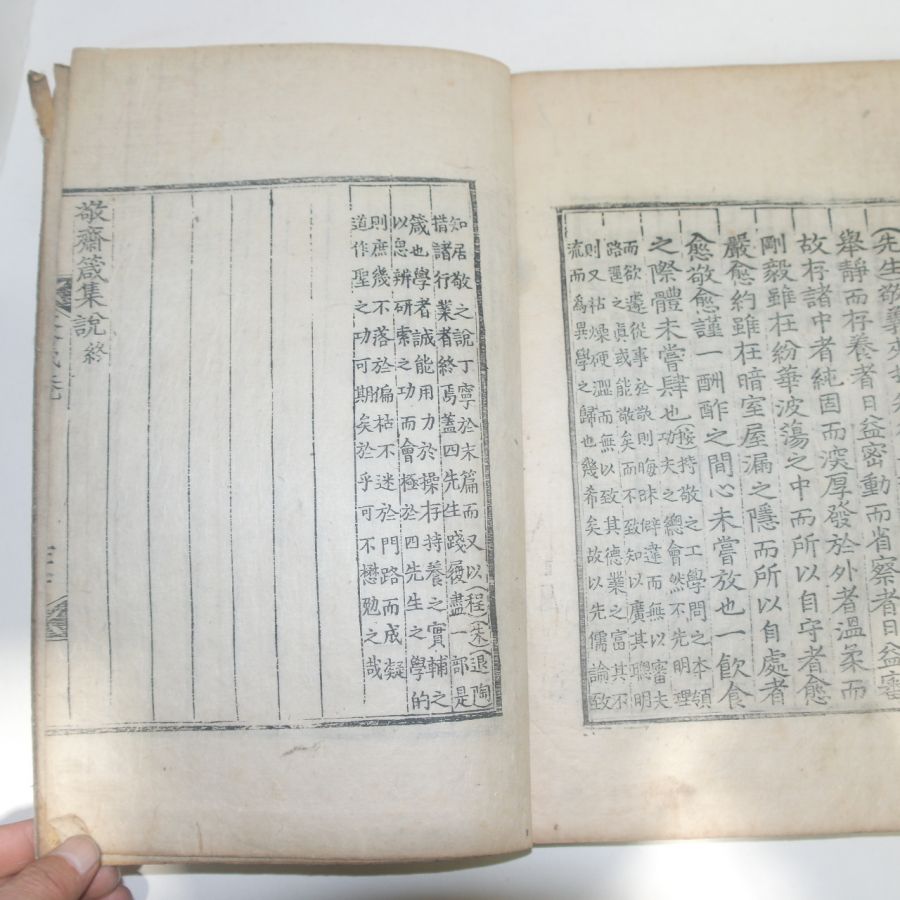 先生敬義夾
擧靜而存養者日益密動而省察者日益審
故存諸中者純固而深厚發於外者溫柔而
剛毅雖在紛華波蕩之中而所以自守者愈
嚴愈約雖在暗室屋漏之隱而所以自處者
愈敬愈謹一酬酢之間心未嘗放也一飮食
之際體未嘗肆也
按持敬之工學問之本領
功夫之總會然不先明理
而欲遽從事於敬則晦昧僻違而無以審夫
路逕之眞或能敬矣而不致知以廣其聰明
則又枯燥硬澁而無以致其德業之富其不
流而爲異學之歸也幾希矣故以先儒論致
知居敬之說丁寧於末篇而又以程朱退陶
措諸行業者終焉蓋四先生踐履盡一部是
箴也學者誠能用力於操存持養之實輔之
以思辨硏索之功而會極於四先生之學的
則庶幾不落於偏枯不迷於門路而成凝
道作聖之功可期矣於乎可不懋勉之哉
敬齋箴集說終